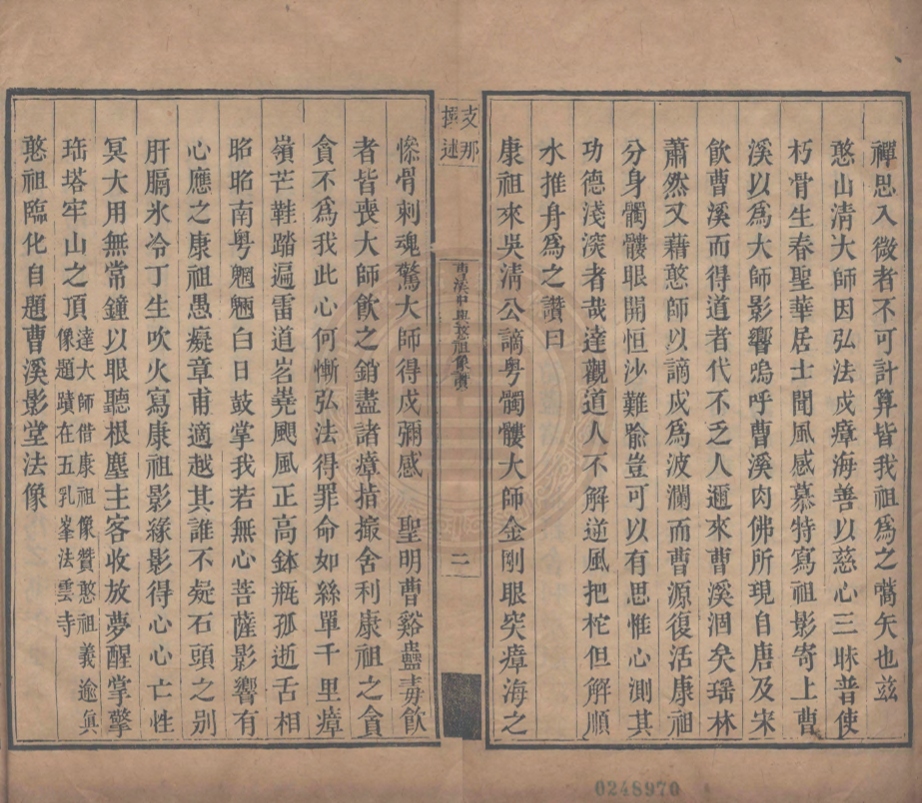 禪思入微者不可計算皆我祖爲之嚆矢也茲
憨山清大師因弘法戍瘴海善以慈心三昧普使
朽骨生春聖華居士聞風感慕特寫祖影寄上曹
溪以爲大師影響嗚呼曹溪肉佛所現自唐及宋
飲曹溪而得道者代不乏人邇來曹溪涸矣瑶林
蕭然又藉憨師以謫戍爲波瀾而曹源復活康祖
分身髑髏眼開恒沙難喻豈可以有思惟心測其
功德淺深者哉達觀道人不解逆風把柁但解順
水推身爲之讚曰
康祖來吳清公謫粵髑髏大師金剛眼突瘴海之
支那
撰述
二
慘骨刺魂驚大師得戍彌感 聖明曹谿蠱毒飲
者皆喪大師飲之銷盡諸瘴拮撮舍利康祖之貪
貪不爲我此心何慚弘法得罪命如絲單千里瘴
嶺芒鞋踏遍雷道岧嶤颶風正高鉢瓶孤逝舌相
昭昭南粵魍魎白日鼓掌我若無心菩薩影響有
心應之康祖愚癡章甫適越其誰不凝石頭之别
肝膈氷冷丁生吹火寫康祖影緣影得心心亡性
冥大用無常鐘以眼聽根塵主客收放夢醒掌擎
珤塔牢山之頂達大師借康祖像贊憨祖義逾眞像題蹟在五乳峯法雲寺
憨祖臨化自題曹溪影堂法像
0248970